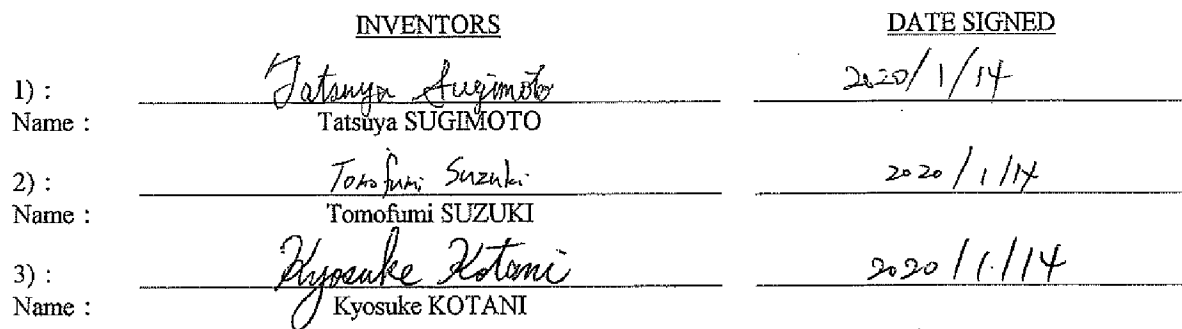 INVENTORS DATE SIGNED
1) : Tatsuya Sugimoto 2020/1/14
Name : Tatsuya SUGIMOTO
2) : Tomofumi Suzuki 2020/1/14
Name : Tomofumi SUZUKI
3) : Kyosuke Kotani 2020/1/14
Name : Kyosuke KOTANI